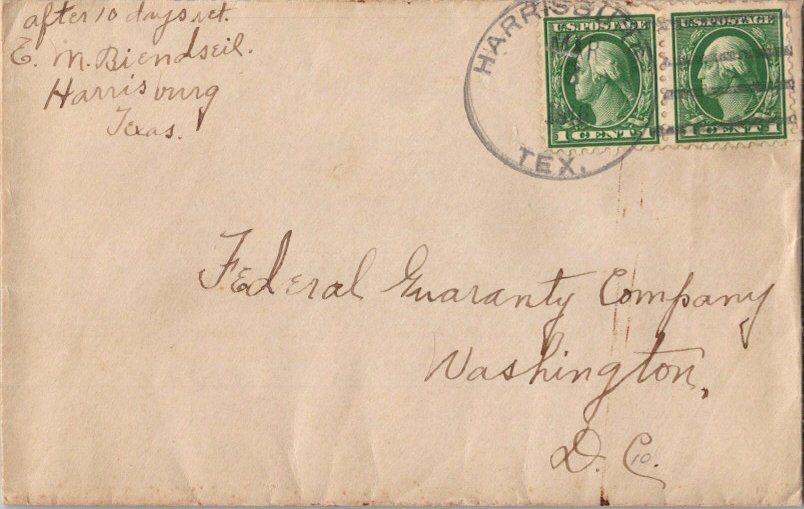 after 10 days ret.
E. M. Biendseil.
Harrisburg
Texas.
HARRISBURG
MAR
TEX.
U.S. POSTAGE
1 CENT 1
U.S. POSTAGE
1 CENT 1
Federal Guaranty Company
Washington,
D. C.
10.